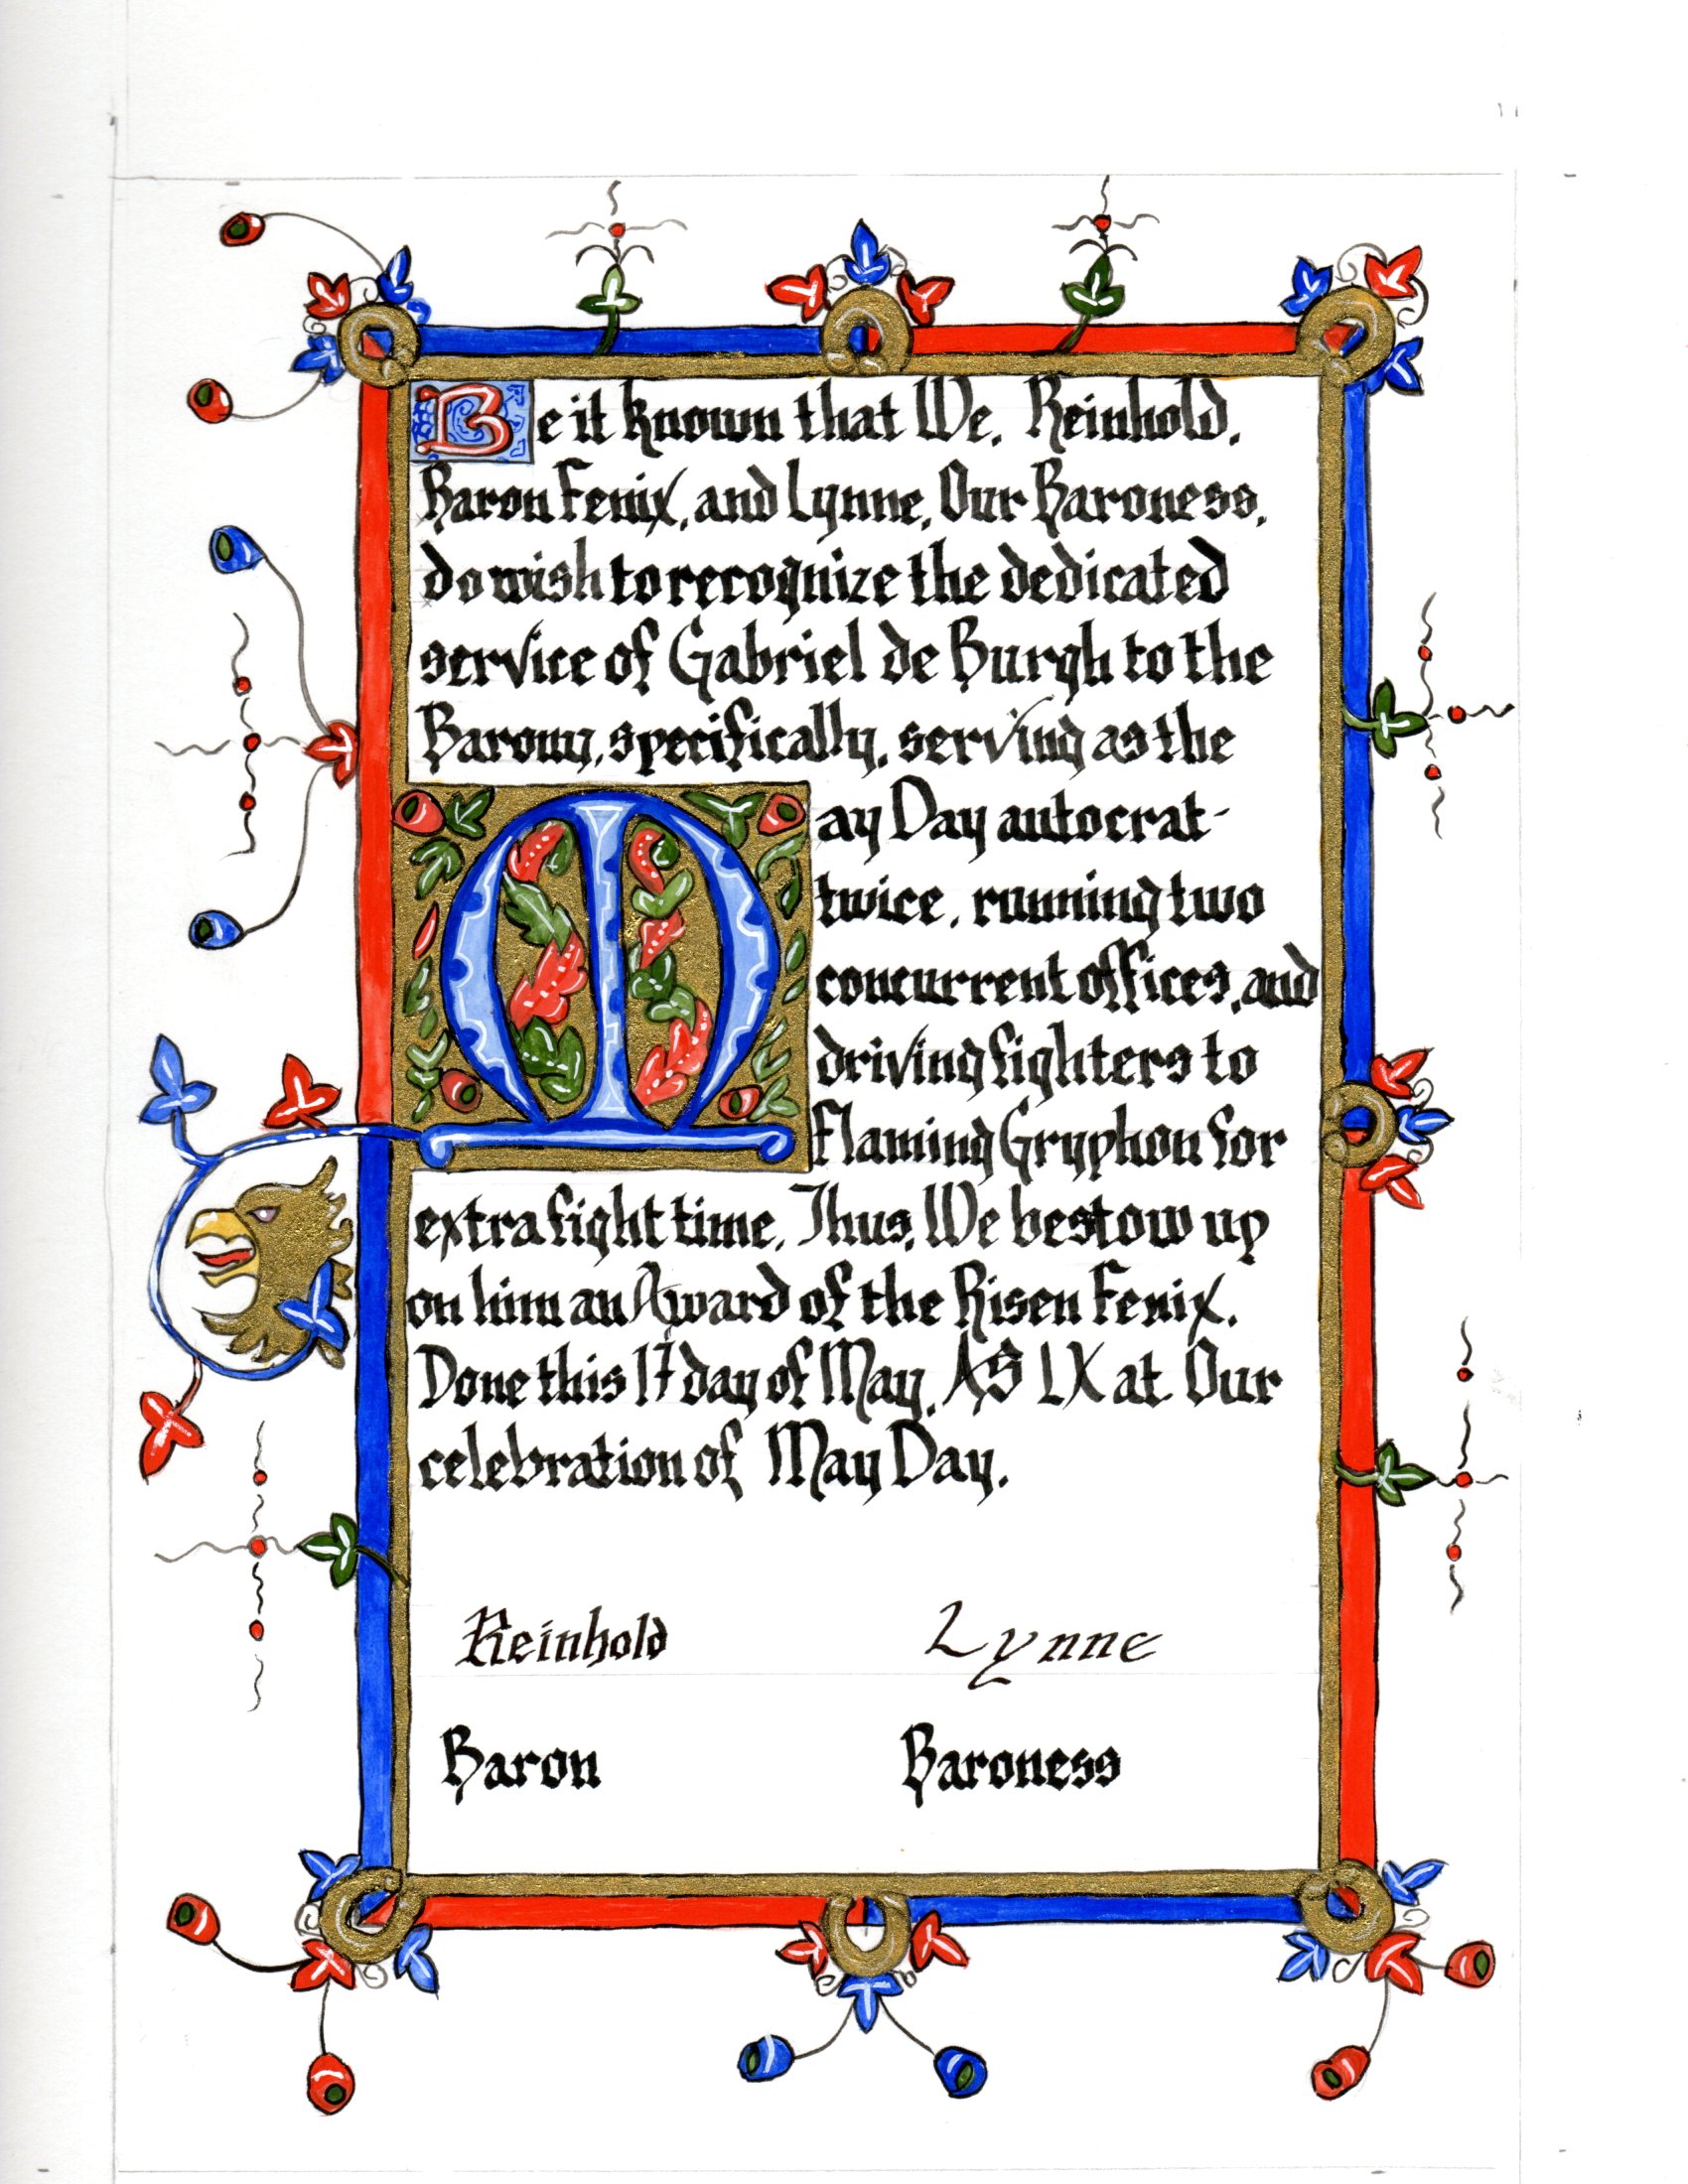 Be it known that We, Reinhold,
Baron Fenix, and Lynne, Our Baroness,
do wish to recognize the dedicated
service of Gabriel de Burgh to the
Barony, specifically, serving as the
May Day autocrat-
twice, running two
concurrent offices, and
driving fighters to
Flaming Gryphon for
extra fight time. Thus, We bestow up
on him an Award of the Risen Fenix.
Done this 17 day of May, AS LX at Our
celebration of May Day.
Reinhold Lynne
Baron Baroness